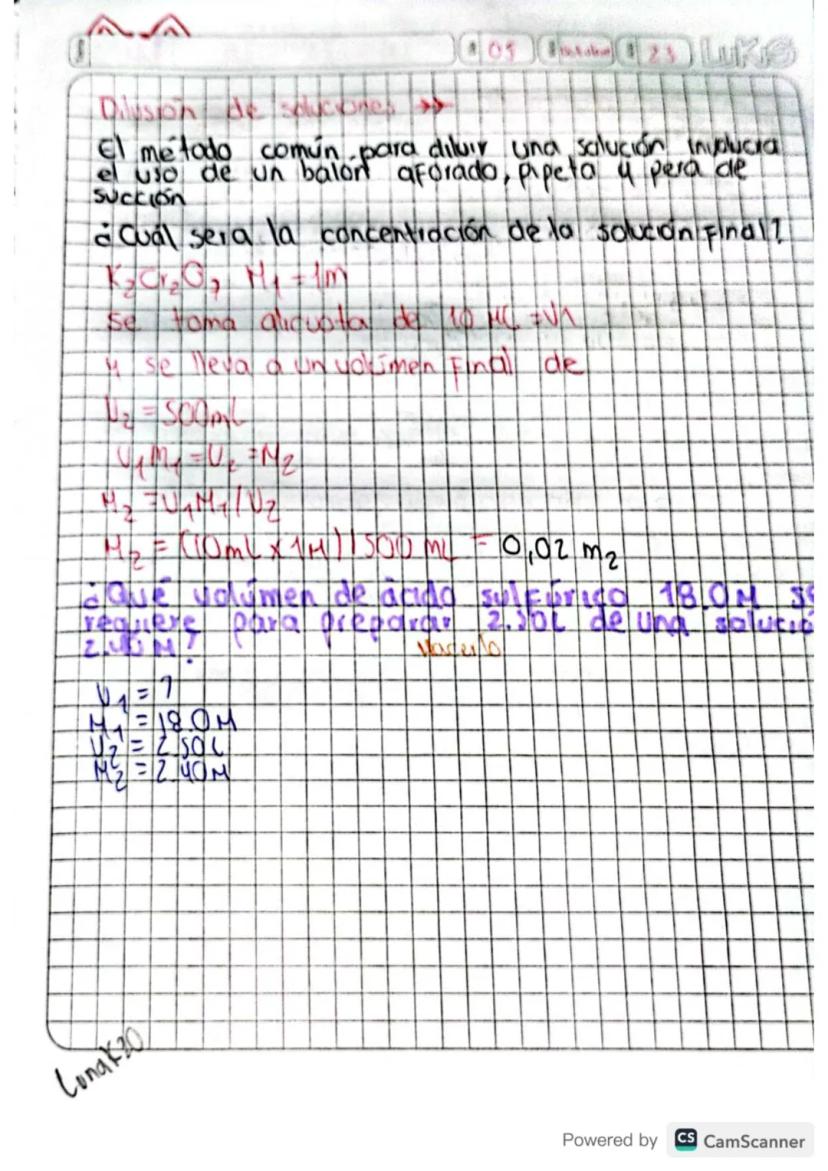 01 23 LUKAS
Dilusión de soluciones →→
El método común para diluir una solución involucra
el uso de un balón aforado, pipeta y pera de
succión
¿Cuál sera la concentración de la solución Final?
K₂Cr₂O₇ M₁ = 1m
se toma alicuota de 10 ML = V1
y se lleva a un volúmen Final de
V₂ = 500mL
V₁M₁ = V₂ = M₂
M₂ = V₁M₁/V₂
M₂ = (10mL x 1M) / 500 mL = 0,02 m₂
¿Qué volúmen de ácido sulfúrico 18.0M se
requiere para preparar 2.50L de una solució
2.40 M?
V₁ = ?
M₁ = 18.0M
V₂ = 2.50L
M₂ = 2.40M
LunaK30
Powered by CS CamScanner